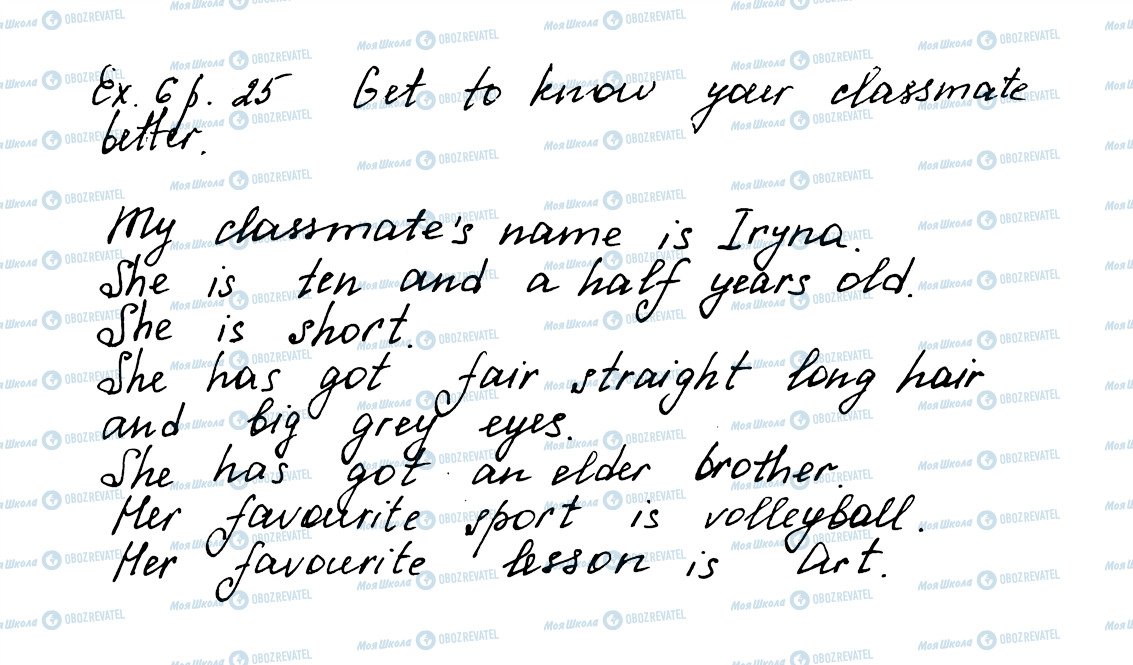 Ex. 6 p. 25 Get to know your classmate
better.
My classmate's name is Iryna.
She is ten and a half years old.
She is short.
She has got fair straight long hair
and big grey eyes.
She has got an elder brother.
Her favourite sport is volleyball.
Her favourite lesson is Art.
Моя Школа OBOZREVATEL